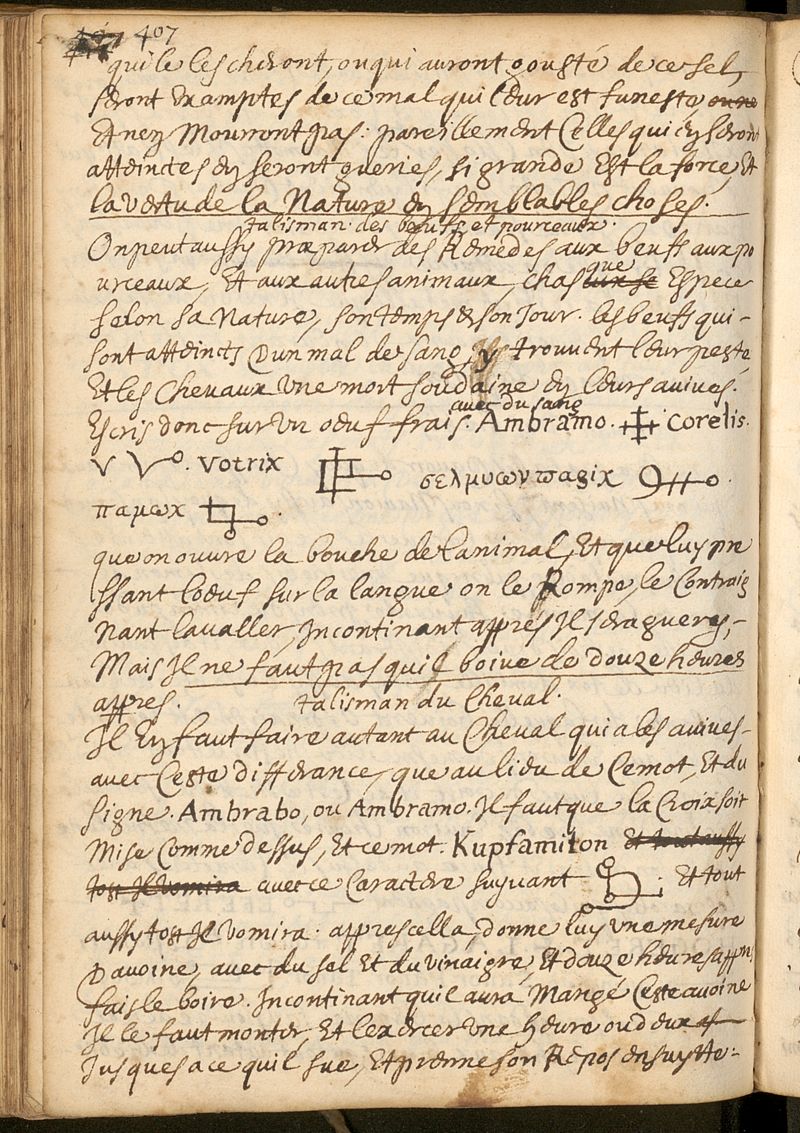 407
qui le lescheront, ou qui auront gousté de ce sel,
seront examptes de ce mal qui leur est funeste
Et n'en Mourront pas: pareillement Celles qui en seront
atteinctes en seront gueries, si grande Est la force, Et
la vertu de la Nature en semblables choses.
talisman des beufs et pourceaux.
On peut aussy præparer des Remedes aux beufs aux po
urceaux, Et aux autres animaux, chasque Espece
selon sa Nature, son temps & son Jour. les beufs qui-
sont atteincts D'un mal de sang, y trouvent leur peste
Et les Chevaux Une mort soudaine en leurs avives.
avec du sang
Escris donc sur un oeuf frais. Ambramo. corelis.
v V. votrix σελμυων παgix
παμωχ
que on ouvre la bouche de l'animal, Et que luy pre
ssant l'oeuf sur la langue on le Rompe, le Contraig
nant l'avaller, Incontinant appres Il sera guery,-
Mais Il ne faut pas qu'il boive de douze heures
appres. talisman du Cheval.
Il En faut faire autant au Cheval qui a les avives-
avec Ceste differance, que au lieu de Ce mot, Et du
signe. Ambrabo, ou Ambramo. Il faut que la Croix soit
Mise Comme dessus, Et ce mot. Kupfamilon Et tout aussy
tost Il vomira avec ce Caractere suyvant Et tout
aussy tost Il vomira. appres cella, donne luy une mesure
D'avoine, avec du sel Et du vinaigre, Et douze heures appres
fais le boire. Incontinant qu'il aura Mangé Ceste avoine
Il le faut monter, Et l'exercer Une heure ou deux
Jusques a ce qu'il sue, Et prenne son Repos en suytte:-